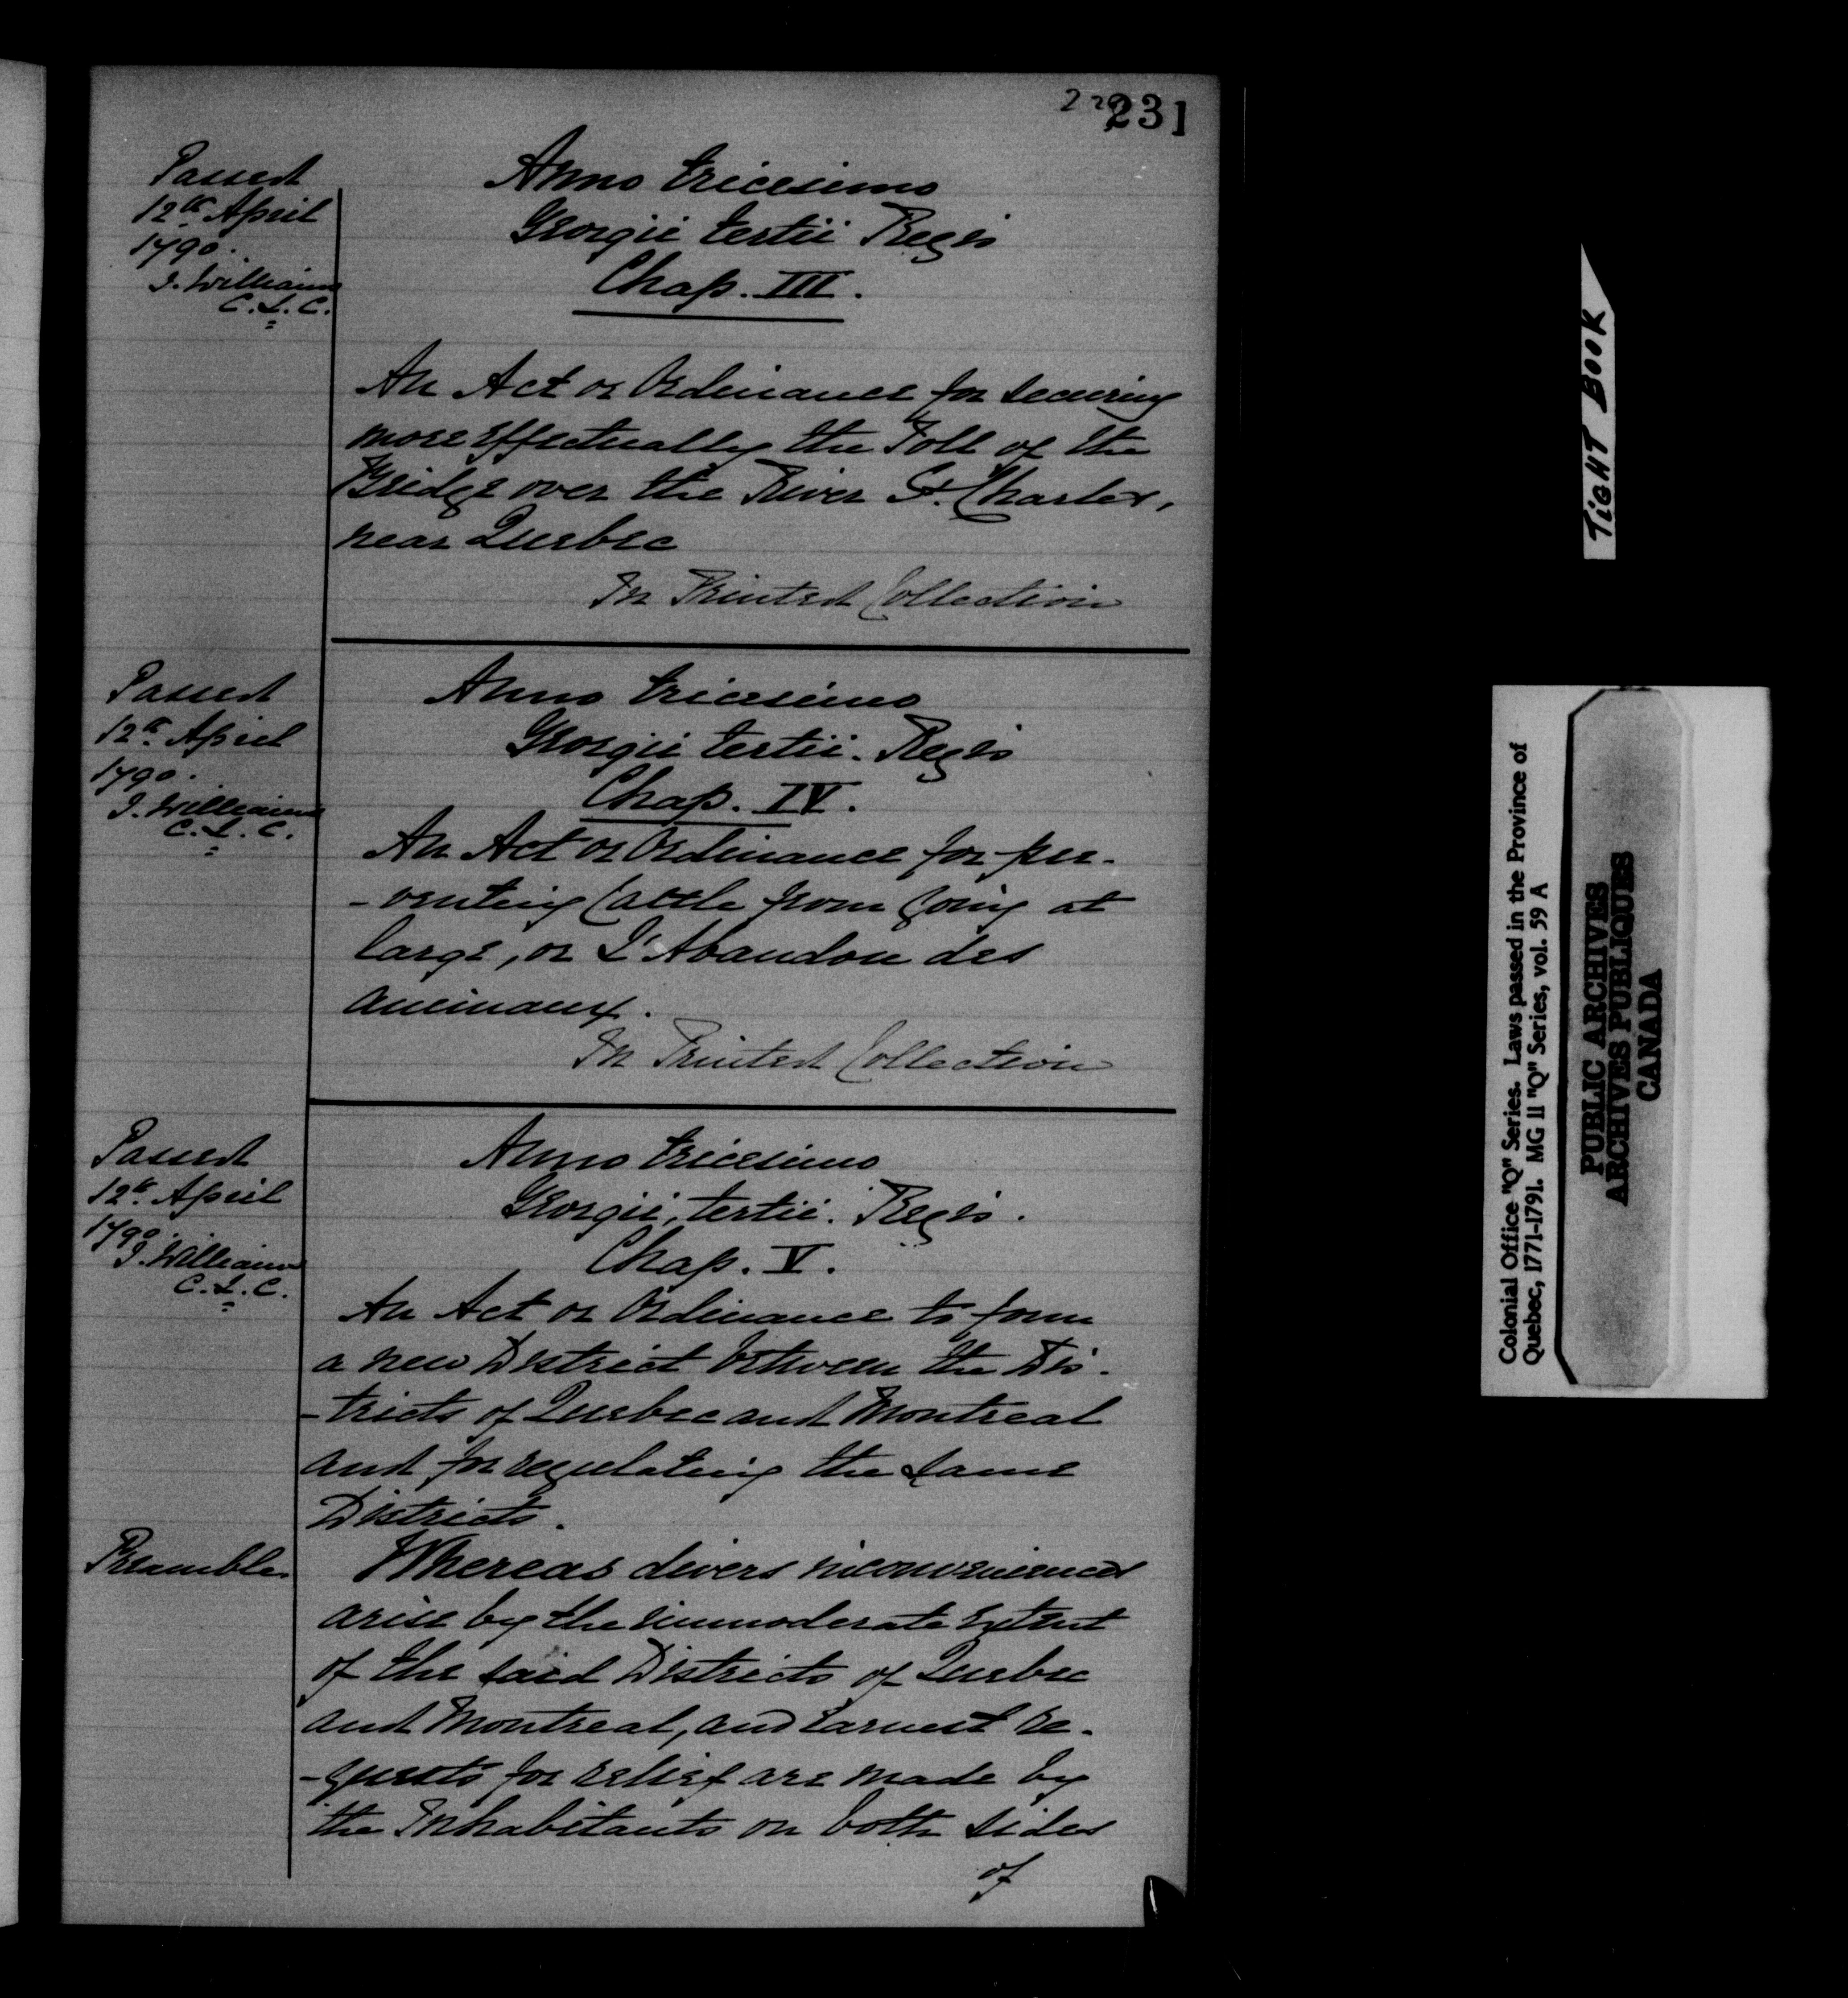 231
Passed
12th April
1790.
J. Williams
C.L.C.
Anno tricesimo
Georgii tertii Regis
Chap. III.
An Act or Ordinance for securing
more effectually the Toll of the
Bridge over the River St. Charles,
near Quebec
In Printed Collection
Passed
12th April
1790.
J. Williams
C.L.C.
Anno tricesimo
Georgii tertii. Regis
Chap. IV.
An Act or Ordinance for pre-
-venting Cattle from going at
large, or L'Abandon des
animaux.
In Printed Collection
Passed
12th April
1790.
J. Williams
C.L.C.
Anno tricesimo
Georgii, tertii. Regis.
Chap. V.
An Act or Ordinance to form
a new District between the Dis-
-tricts of Quebec and Montreal
and for regulating the same
Districts.
Preamble.
Whereas divers inconveniences
arise by the immoderate extent
of the said Districts of Quebec
and Montreal, and earnest re-
-quests for relief are made by
the Inhabitants on both sides
of
TIGHT BOOK
Colonial Office "Q" Series. Laws passed in the Province of
Quebec, 1771-1791. MG 11 "Q" Series, vol. 59 A
PUBLIC ARCHIVES
ARCHIVES PUBLIQUES
CANADA